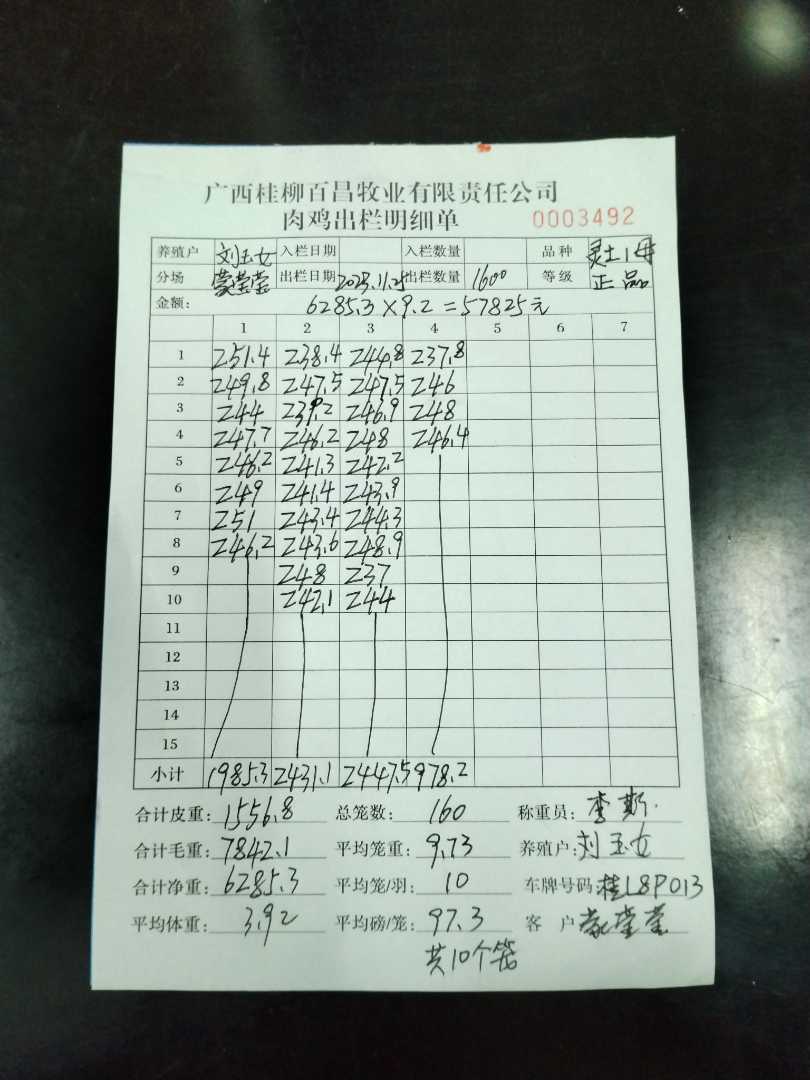 广西桂柳百昌牧业有限责任公司
肉鸡出栏明细单 0003492
养殖户 刘玉女 入栏日期 入栏数量 品种 灵土1母
分场 蒙莹莹 出栏日期 2025.11.25 出栏数量 1600 等级 正品
金额: 6285.3×9.2=57825元
1 2 3 4 5 6 7
1 251.4 238.4 244.8 237.8
2 249.8 247.5 247.5 246
3 244 239.2 246.9 248
4 247.7 246.2 248 246.4
5 246.2 241.3 242.2
6 249 241.4 243.9
7 251 243.4 244.3
8 246.2 243.6 248.9
9 248 237
10 242.1 244
11
12
13
14
15
小计 1985.3 2431.1 2447.5 978.2
合计皮重: 1556.8 总笼数: 160 称重员: 李斯
合计毛重: 7842.1 平均笼重: 9.73 养殖户: 刘玉女
合计净重: 6285.3 平均笼/羽: 10 车牌号码: 桂L8P013
平均体重: 3.92 平均磅/笼: 97.3 客户 蒙莹莹
共10个笼